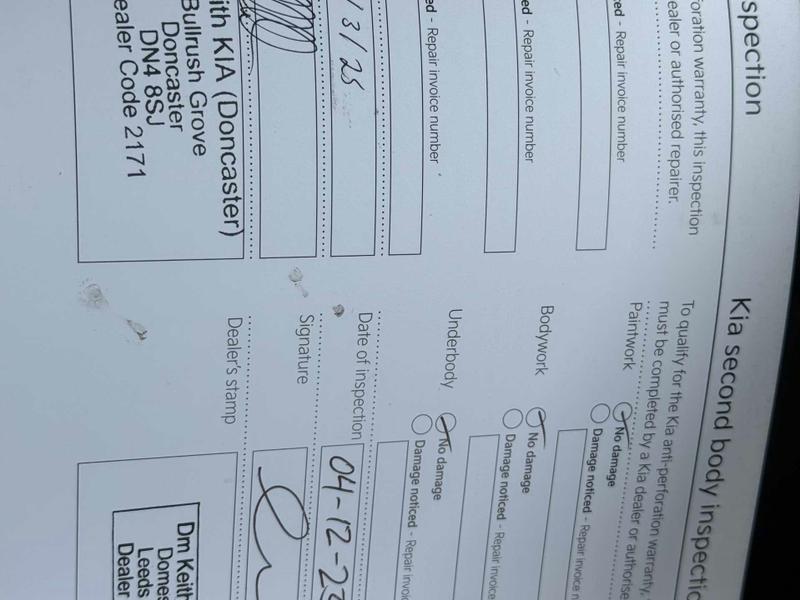 spection
foration warranty, this inspection
ealer or authorised repairer.
ed - Repair invoice number
ed - Repair invoice number
ed - Repair invoice number
/3/25
ith KIA (Doncaster)
Bullrush Grove
Doncaster
DN4 8SJ
ealer Code 2171
Kia second body inspectio
To qualify for the Kia anti-perforation warranty,
must be completed by a Kia dealer or authorise
Paintwork
No damage
Damage noticed - Repair invoice n
Bodywork
No damage
Damage noticed - Repair invoice
Underbody
No damage
Damage noticed - Repair invoic
Date of inspection
04-12-2
Signature
Dealer's stamp
Dm Keith
Domes
Leeds
Dealer